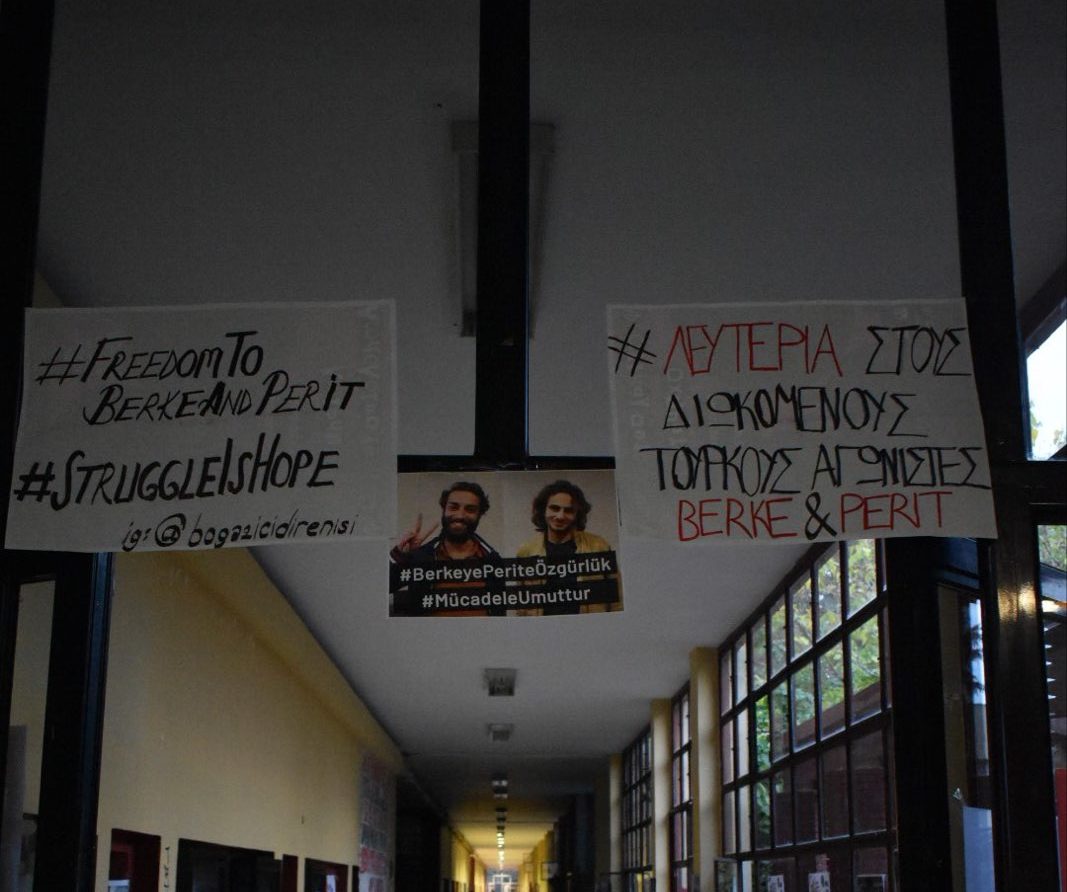 #FREEDOMTO
BERKEANDPERIT
#STRUGGLEISHOPE
ig:@bogazicidirenisi
#BerkeyePeriteÖzgürlük
#MücadeleUmuttur
# ΛΕΥΤΕΡΙΑ ΣΤΟΥΣ
ΔΙΩΚΟΜΕΝΟΥΣ
ΤΟΥΡΚΟΥΣ ΑΓΩΝΙΣΤΕΣ
BERKE & PERIT